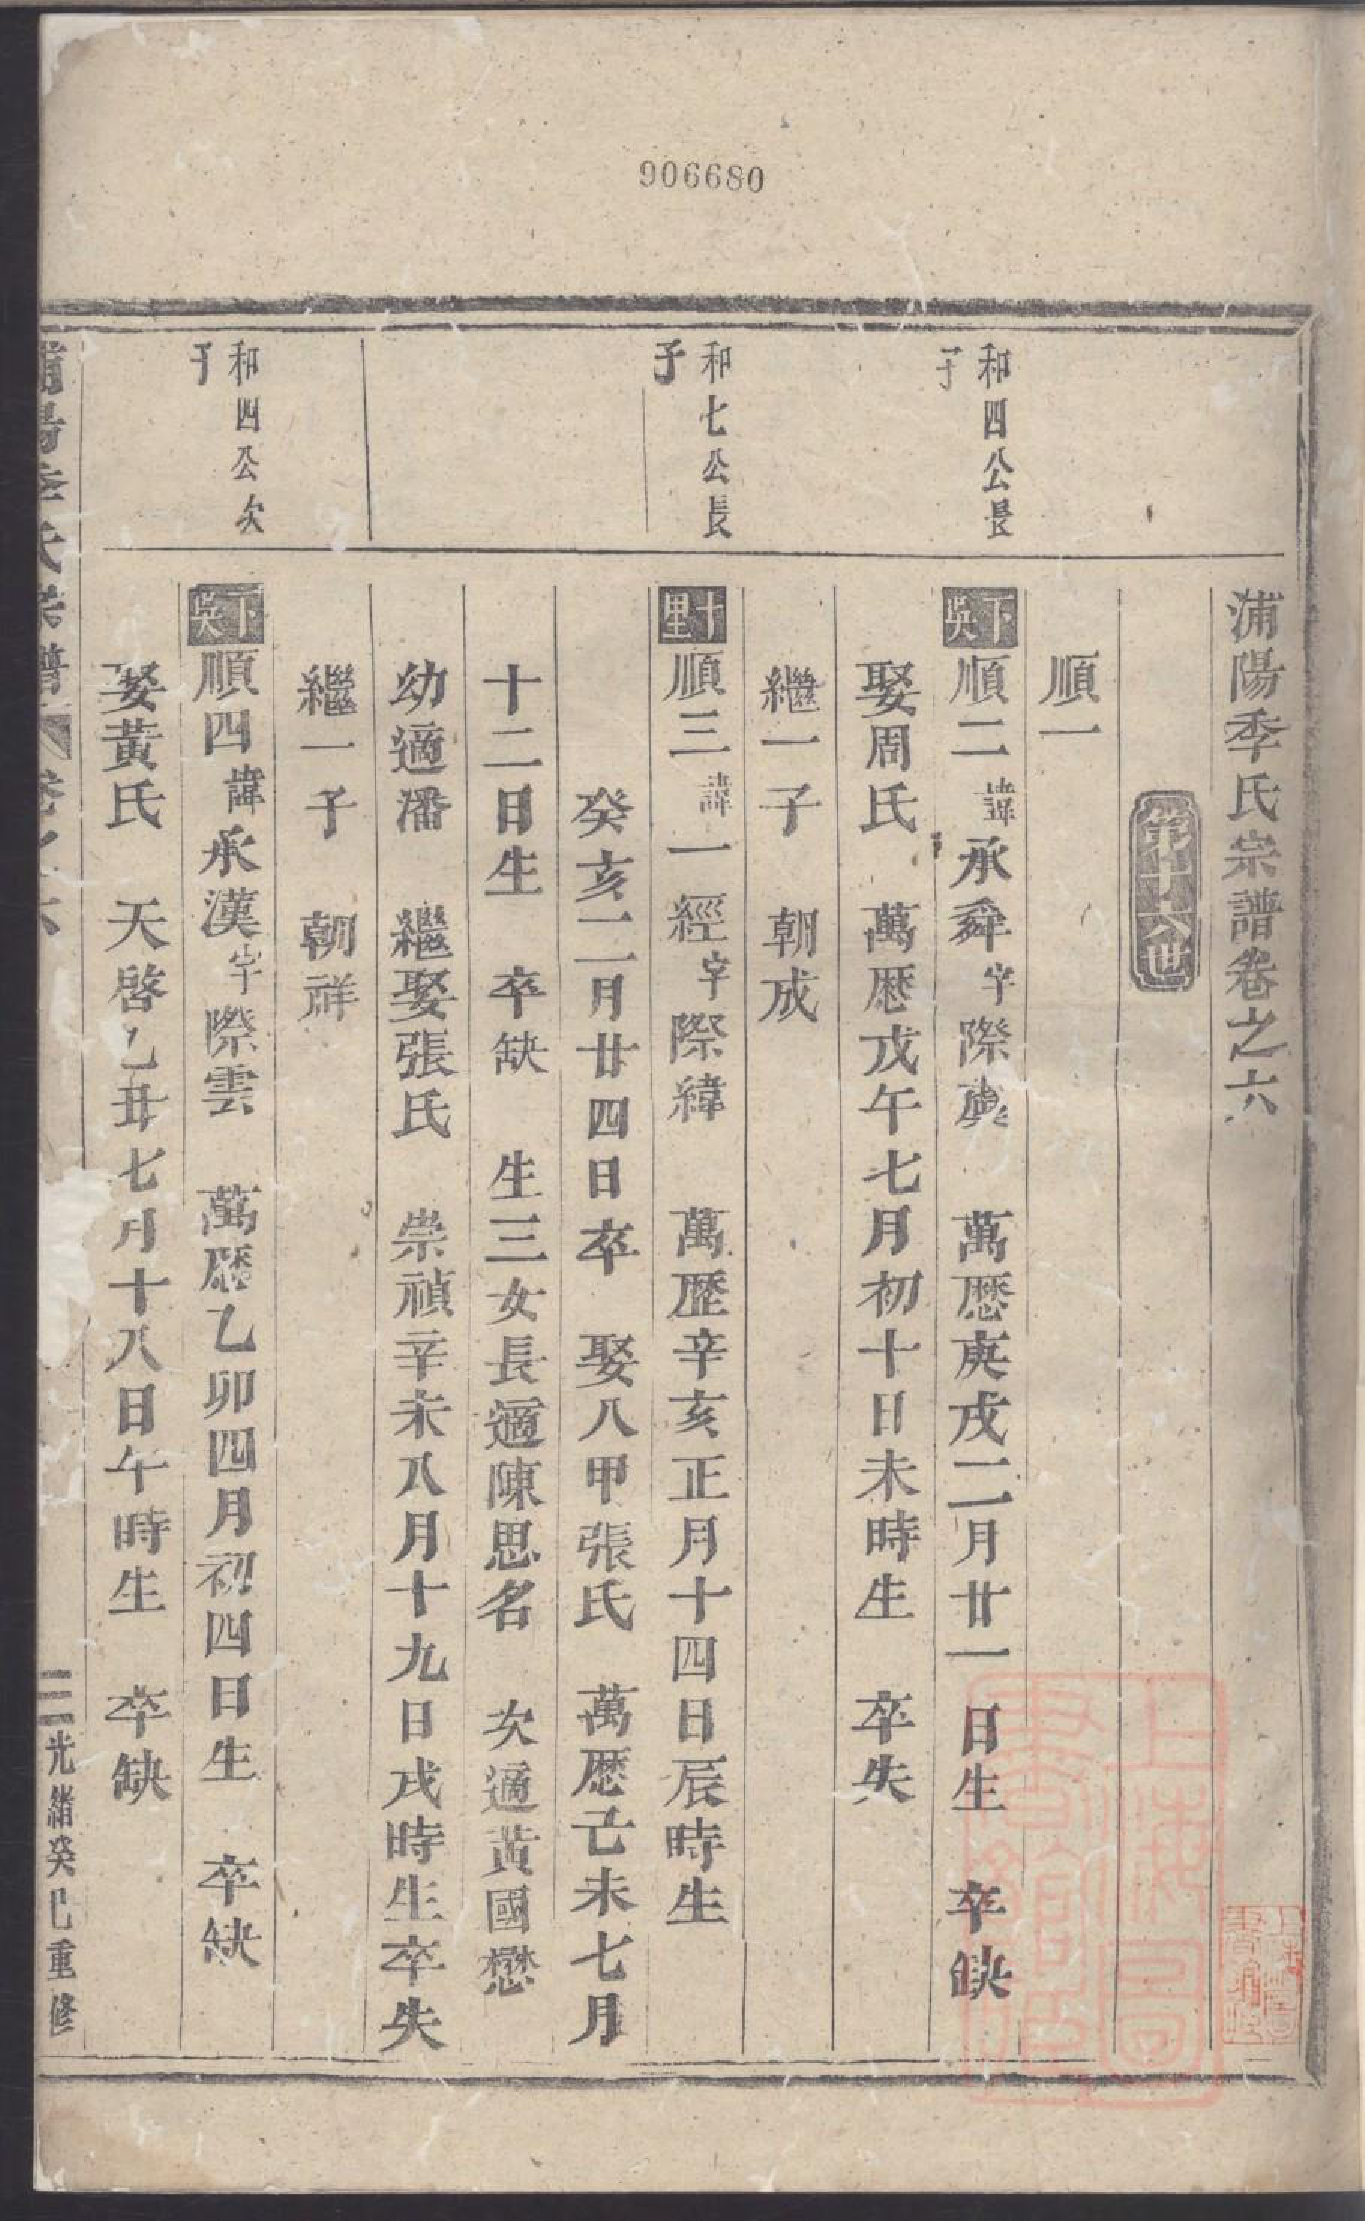 906680
浦陽季氏宗譜卷之六
第十六世
順一
和四公長
子
下吳
順二諱承舜字際虞 萬歷庚戌二月廿一日生 卒缺
娶周氏 萬歷戊午七月初十日未時生 卒失
繼一子 朝成
和七公長
子
十里
順三諱一經字際緯 萬歷辛亥正月十四日辰時生
癸亥二月廿四日卒 娶八甲張氏 萬歷己未七月
十二日生 卒缺 生三女長適陳思名 次適黃國懋
幼適潘 繼娶張氏 崇禎辛未八月十九日戌時生卒失
繼一子 朝祥
和四公次
子
下吳
順四諱承漢字際雲 萬歷乙卯四月初四日生 卒缺
娶黃氏 天啓乙丑七月十八日午時生 卒缺
浦陽季氏宗譜 卷之六
三 光緒癸巳重修
上海圖書館藏